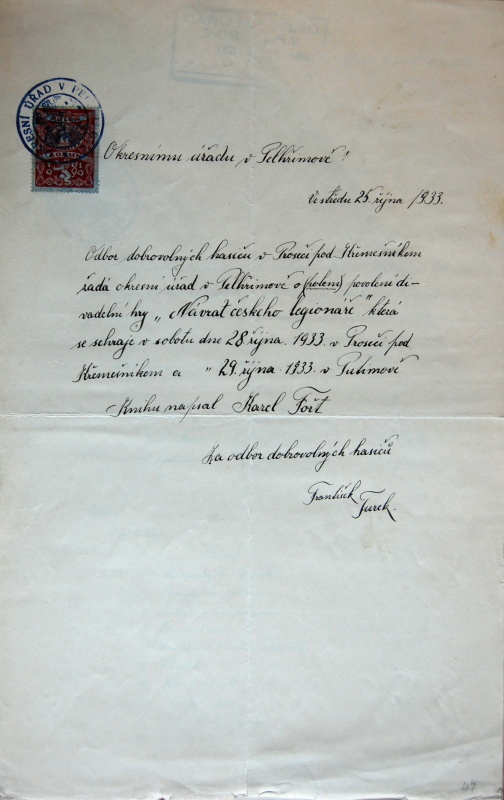 OKRESNÍ ÚŘAD V PEL
Okresnímu úřadu v Pelhřimově!
Ve středu 25 října 1933.
Odbor dobrovolných hasičů v Proseči pod Křemešníkem
řádá okresní úřad v Pelhřimově o (polení) povolení di-
vadelní hry „Návrat českeho legionáře" která
se sehraje v sobotu dne 28 října. 1933. v Proseči pod
Křemešníkem a „ 29. října. 1933. v Putimově
Knihu napsal Karel Fořt
Za odbor dobrovolných hasičů
František
Turek.
27